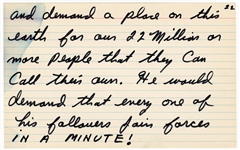 22
and demand a place on this
earth for our 22 Million or
more People that they Can
Call their own. He would
demand that every one of
his followers Join forces
IN A MINUTE!